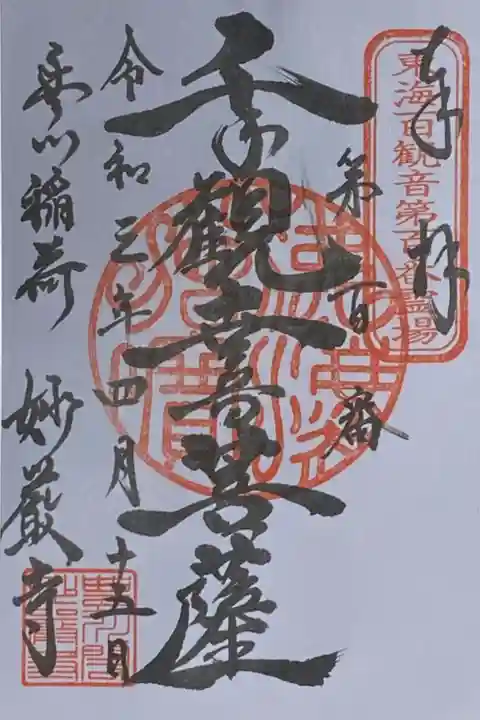 奉拝
東海百観音第百番霊場
第百番
千手観世音菩薩
令和三年四月十五日
豊川稲荷 妙厳寺